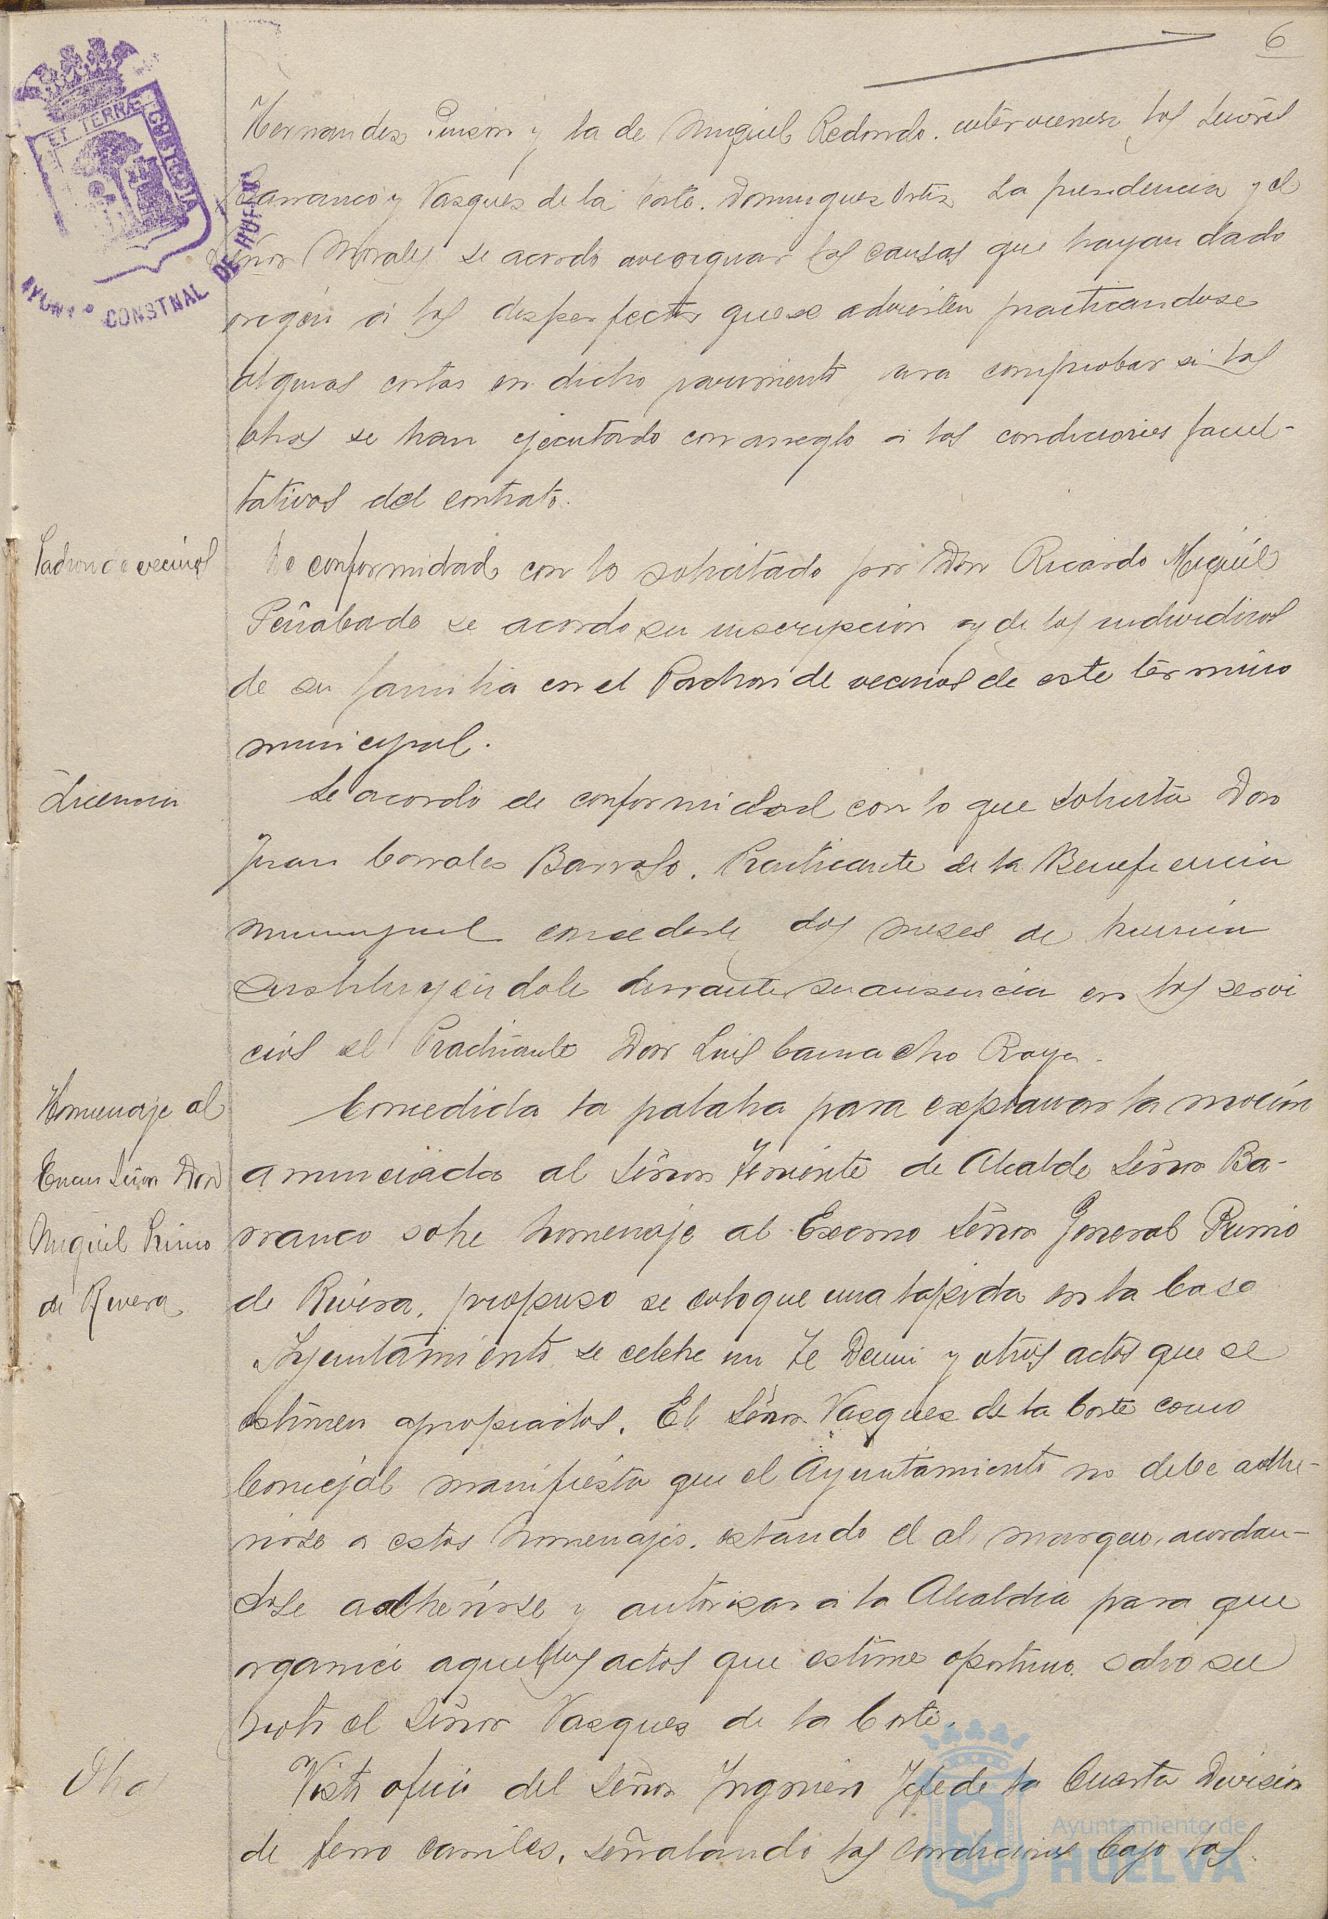 6
Hernandez Pinzón y la de Miguel Redondo. intervienen los Señores
Barranco y Vazquez de la Corte. Dominguez Ortiz La presidencia y el
Señor Morales se acordo averiguar las causas que hayan dado
origen á los desperfectos que se advierten practicandose
algunas cortas en dicho pavimento para comprobar si las
obras se han ejecutado con arreglo á las condiciones facul-
tativas del contrato.
Padron de vecinos
De conformidad con lo solicitado por Don Ricardo Miguél
Peñabade se acordo su inscripcion y de los individuos
de su familia en el Padron de vecinos de este término
municipal.
Licencia
Se acordo de conformidad con lo que solicita Don
Juan Corrales Barroso. Practicante de la Beneficencia
municipal concederle dos meses de licencia
sustituyéndole durante su ausencia en los servi
cios el Practicante Don Luis Camacho Raya.
Homenaje al
Excmo Señor Don
Miguel Primo
de Rivera
Concedida la palabra para explanar la moción
anunciada al Señor Teniente de Alcalde Señor Ba-
rranco sobre homenaje al Excmo Señor General Primo
de Rivera, propuso se coloque una lapida en la Casa
Ayuntamiento se celebre un Te Deum y otros actos que se
estimen apropiados. El Señor Vazquez de la Corte como
Concejal manifiesta que el Ayuntamiento no debe adhe-
rirse a estos homenajes. estando el al margen, acordan-
dose adherirse y autorizar a la Alcaldia para que
organice aquellos actos que estime oportuno salvo su
voto el Señor Vazquez de la Corte.
Visto oficio del Señor Ingeniero Jefe de la Cuarta Division
de ferro carriles, señalando las condiciones bajo las
ET TERRÆ CUSTODIA
AYUNTº CONSTNAL DE HUELVA
Ayuntamiento de
HUELVA